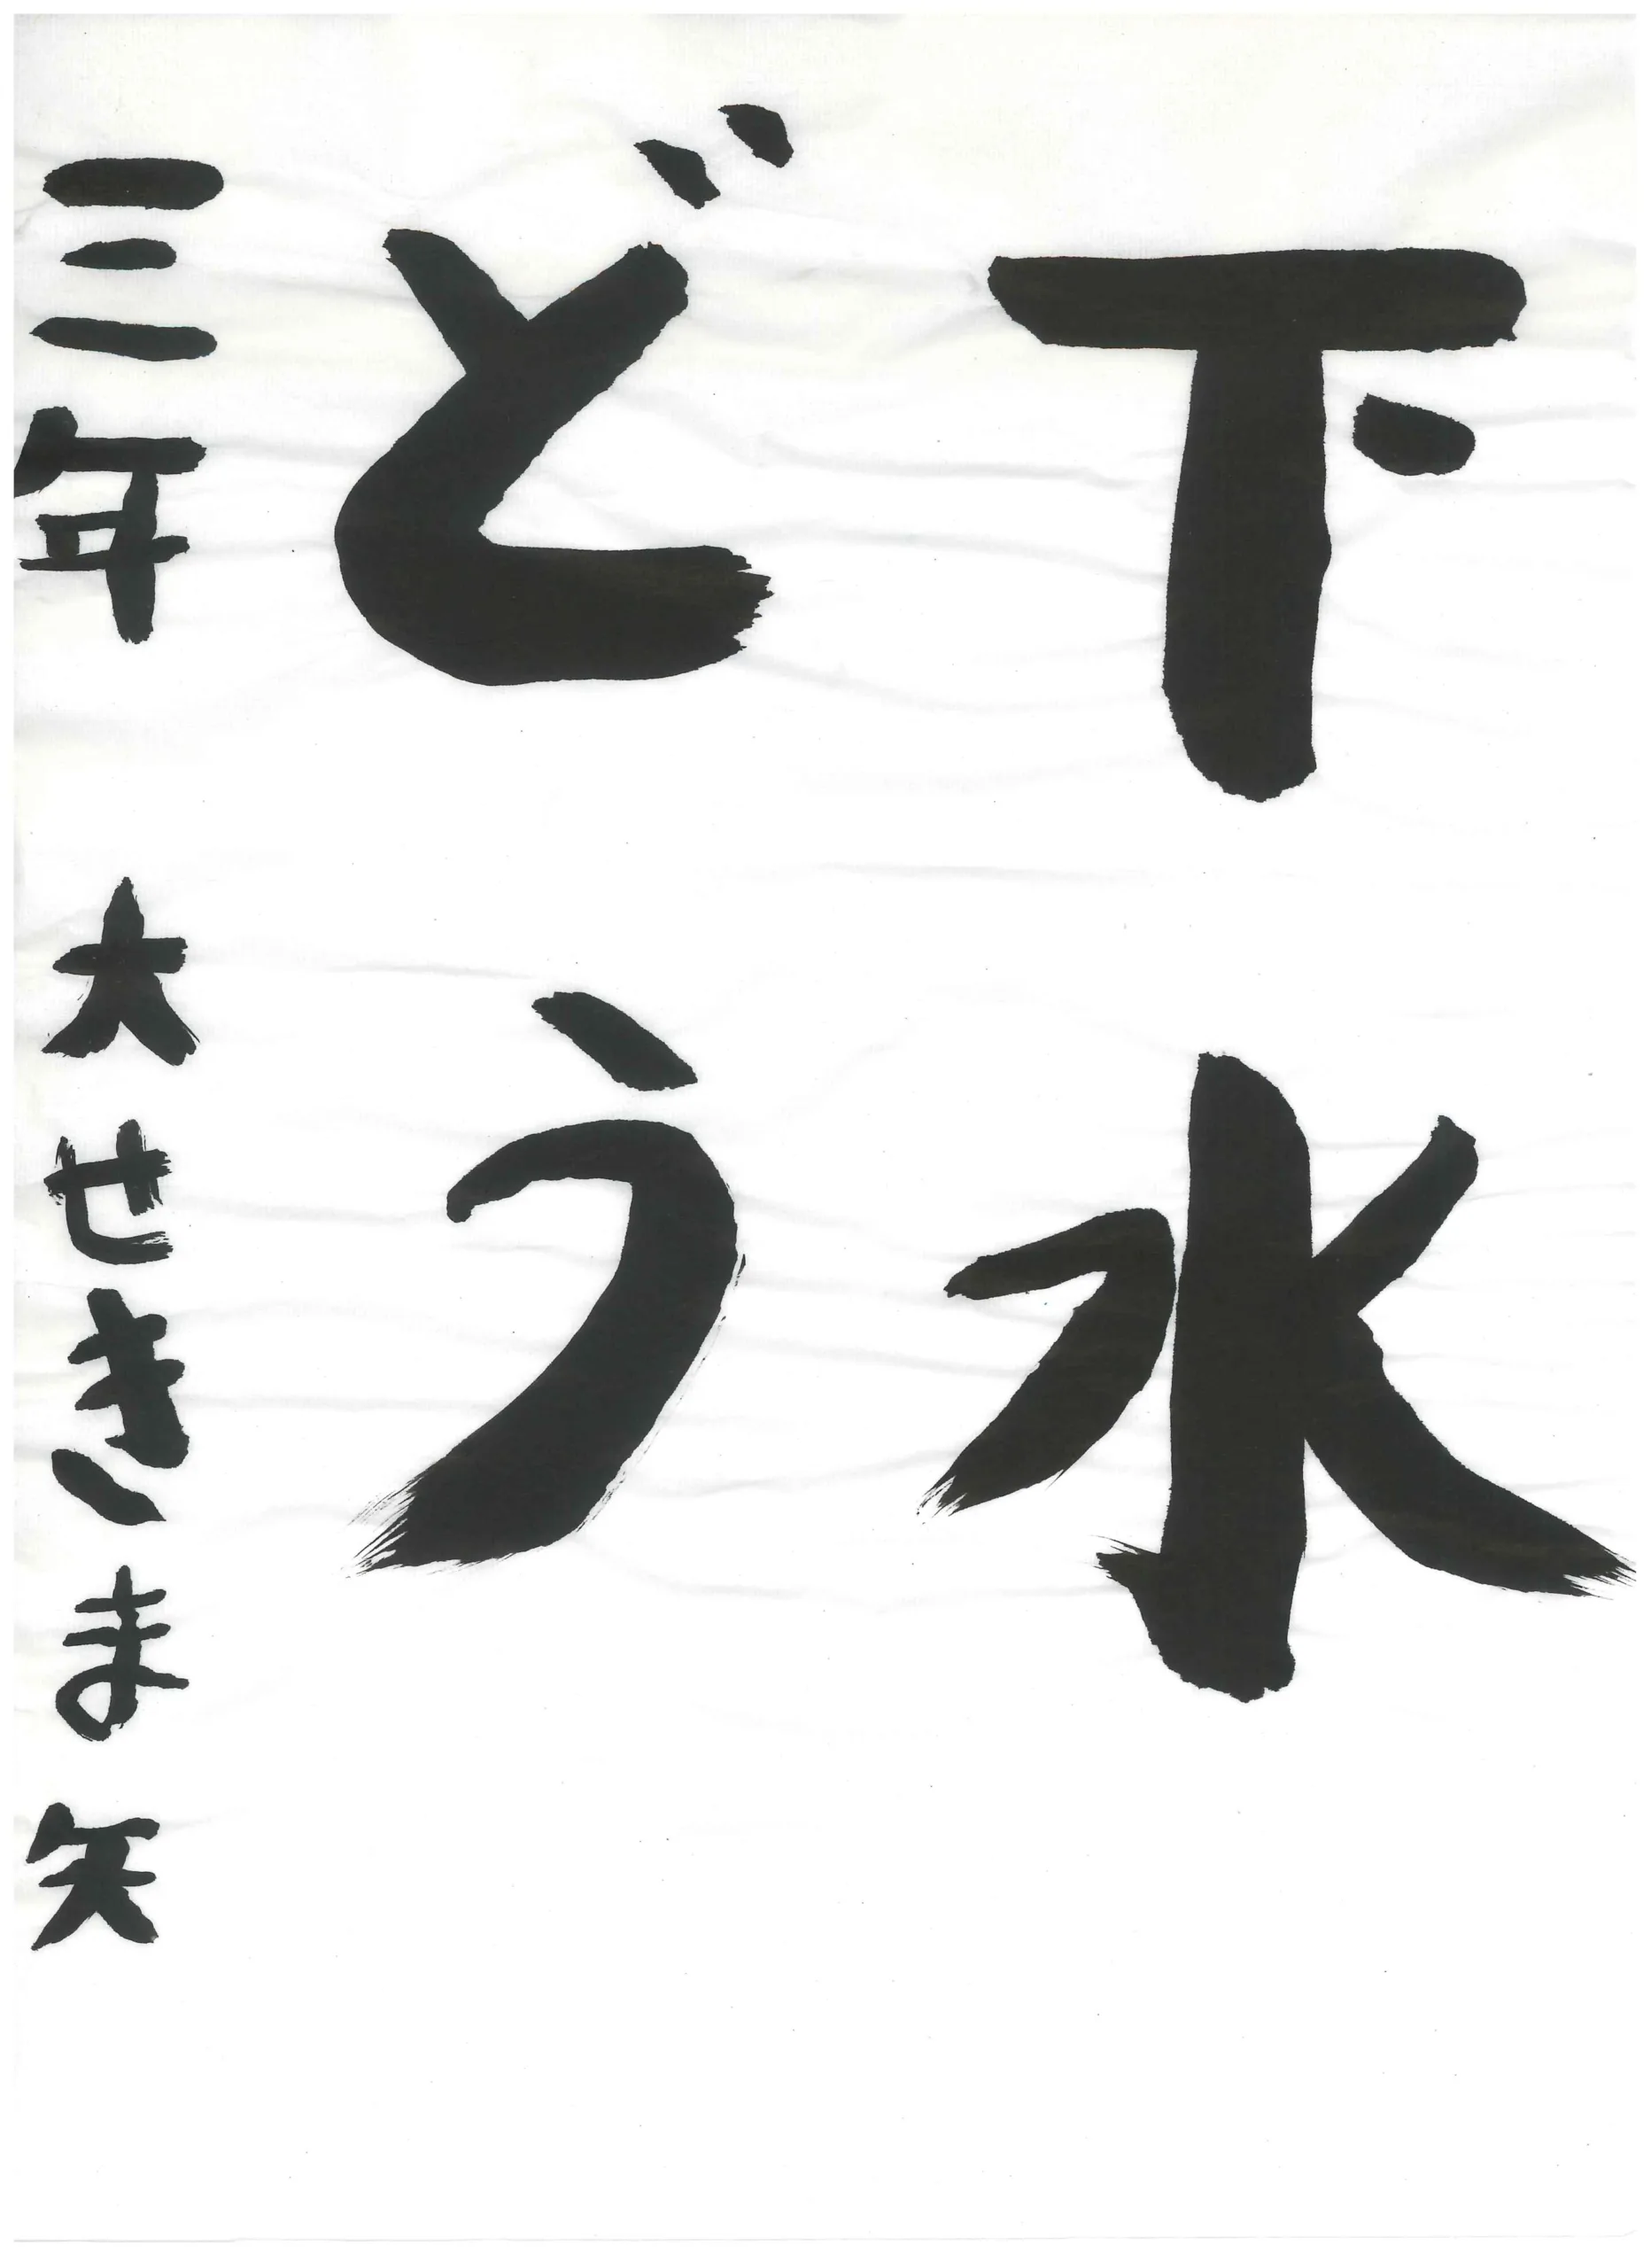 下水
どう
三年 大せきま矢